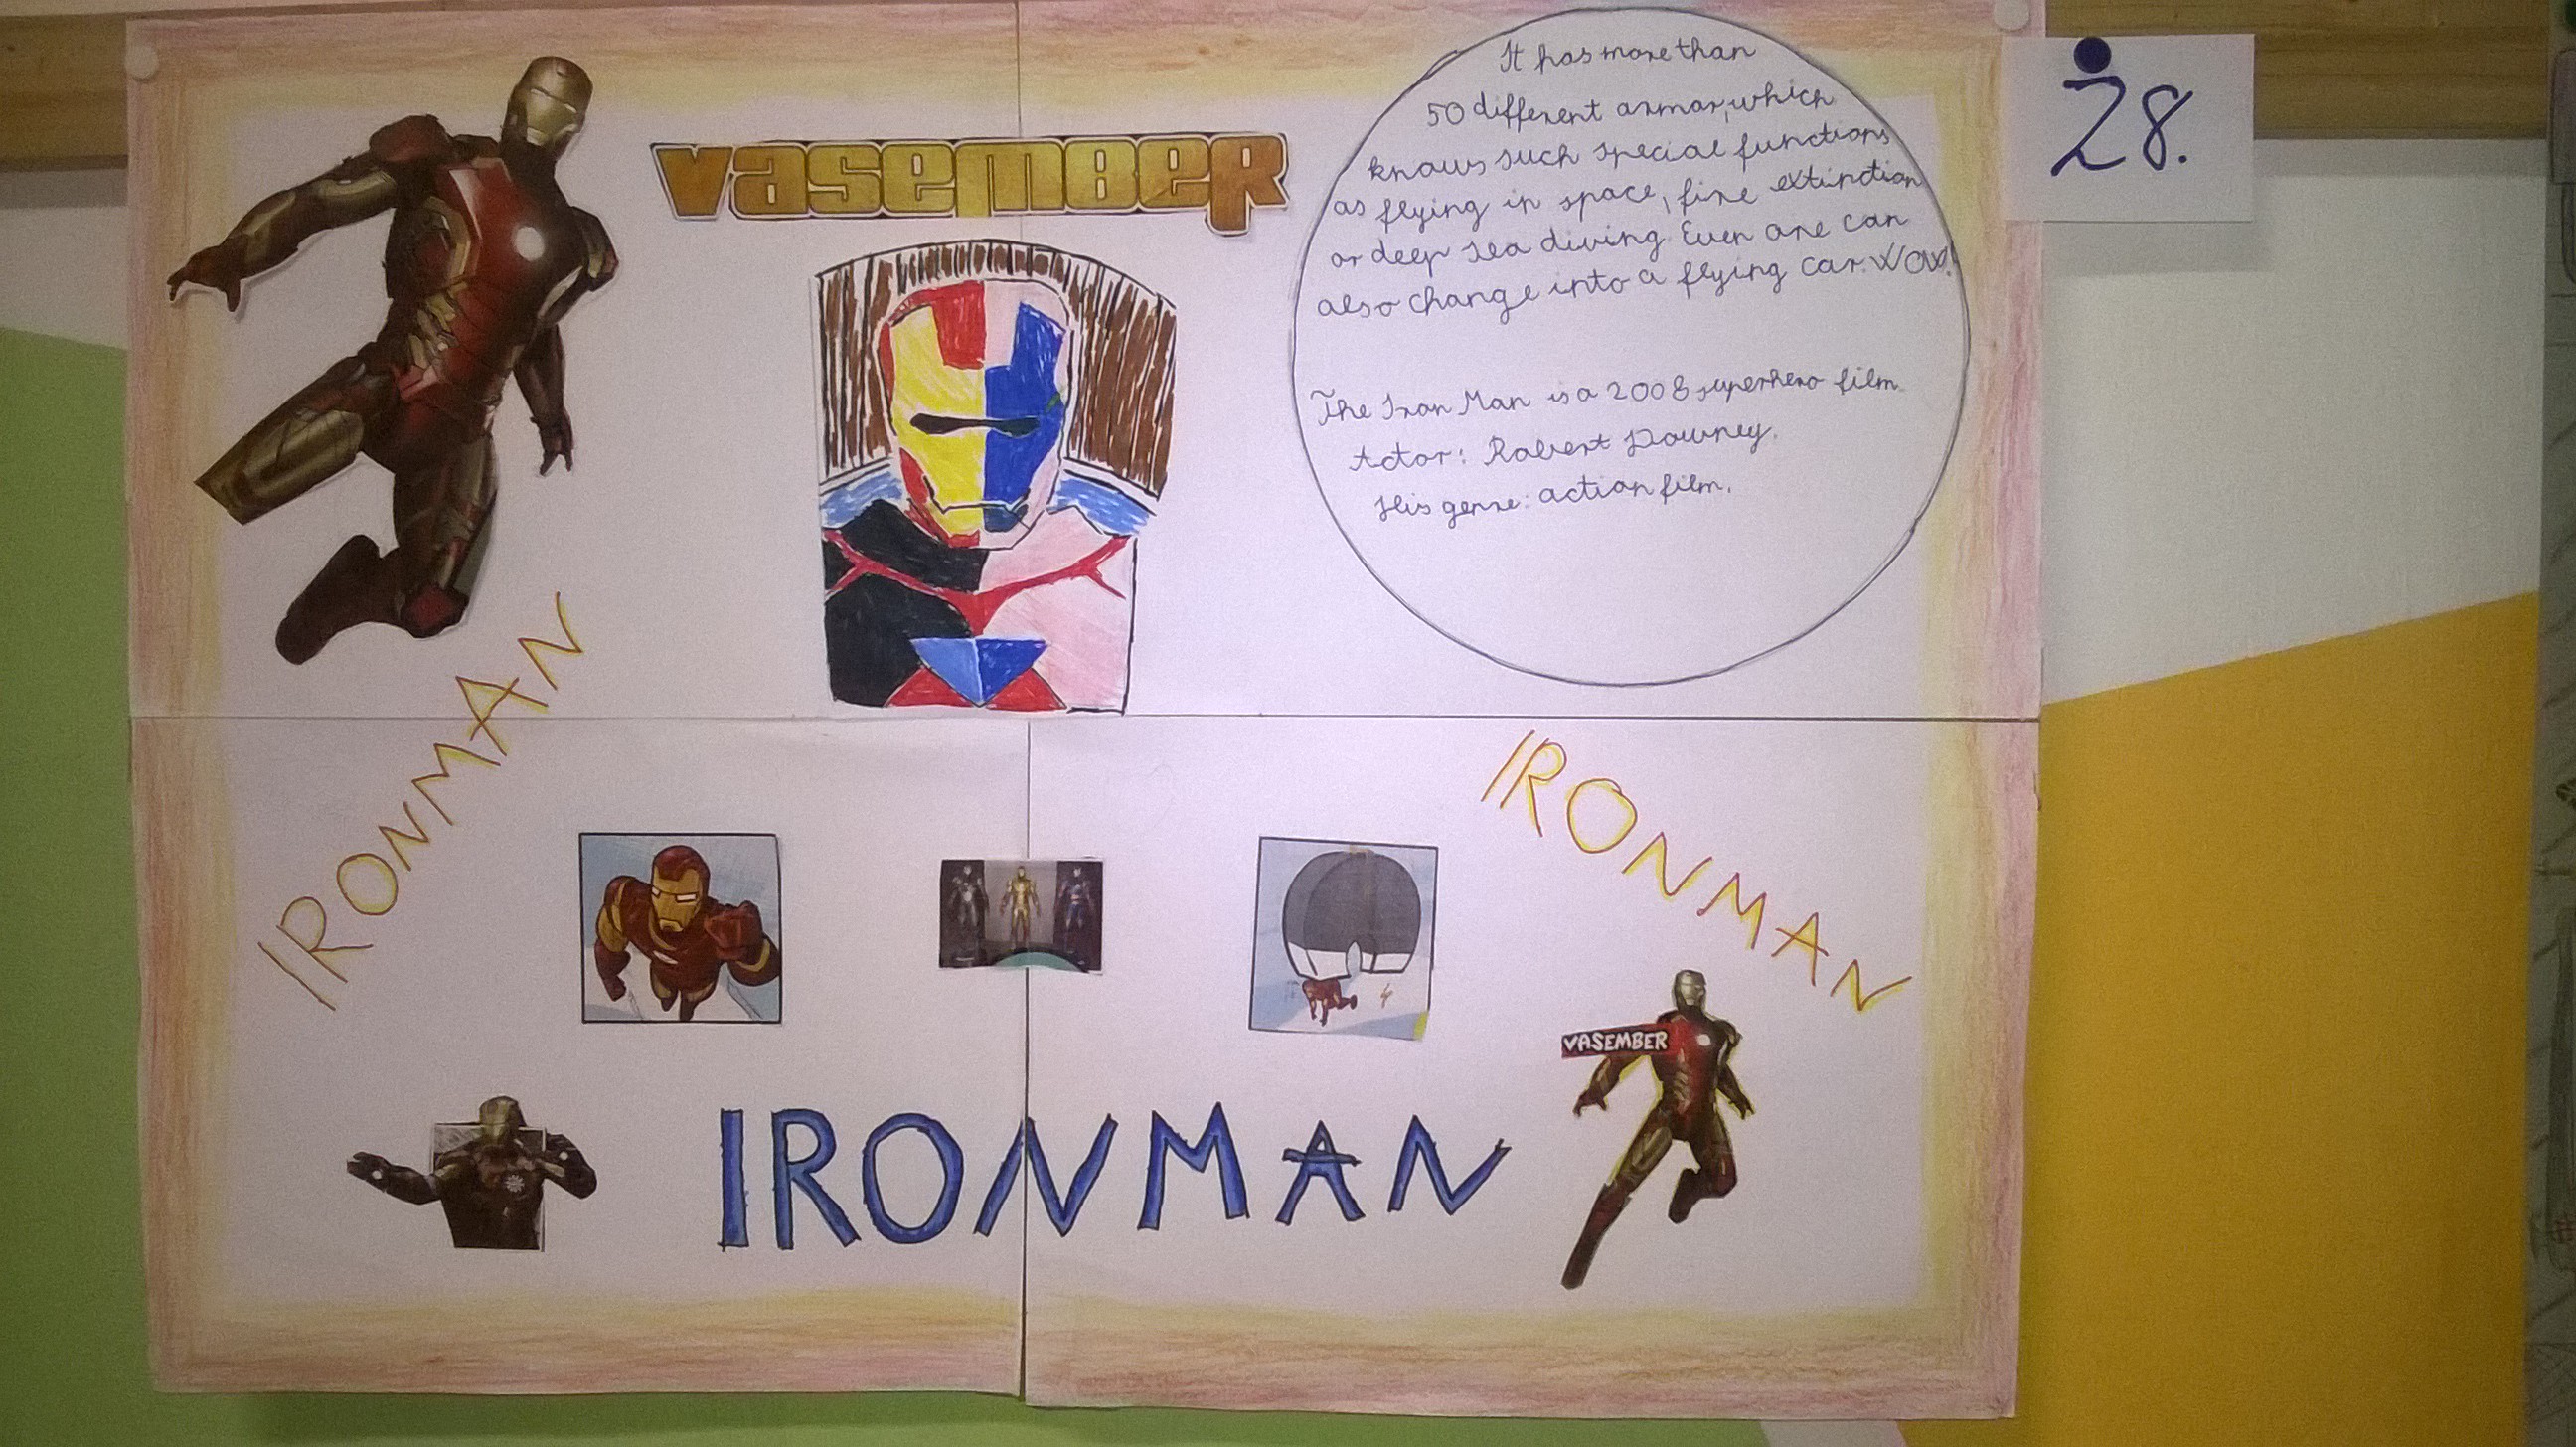 VASEMBER
It has more than
50 different armor, which
knows such special functions
as flying in space, fire extinction
or deep sea diving. Even one can
also change into a flying car. Wow!
The Iron Man is a 2008 superhero film.
Actor: Robert Downey.
His genre: action film.
28.
IRONMAN
IRONMAN
VASEMBER
IRONMAN